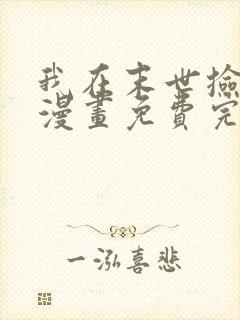 我在末世捡
漫畫免費完
一泓喜悲